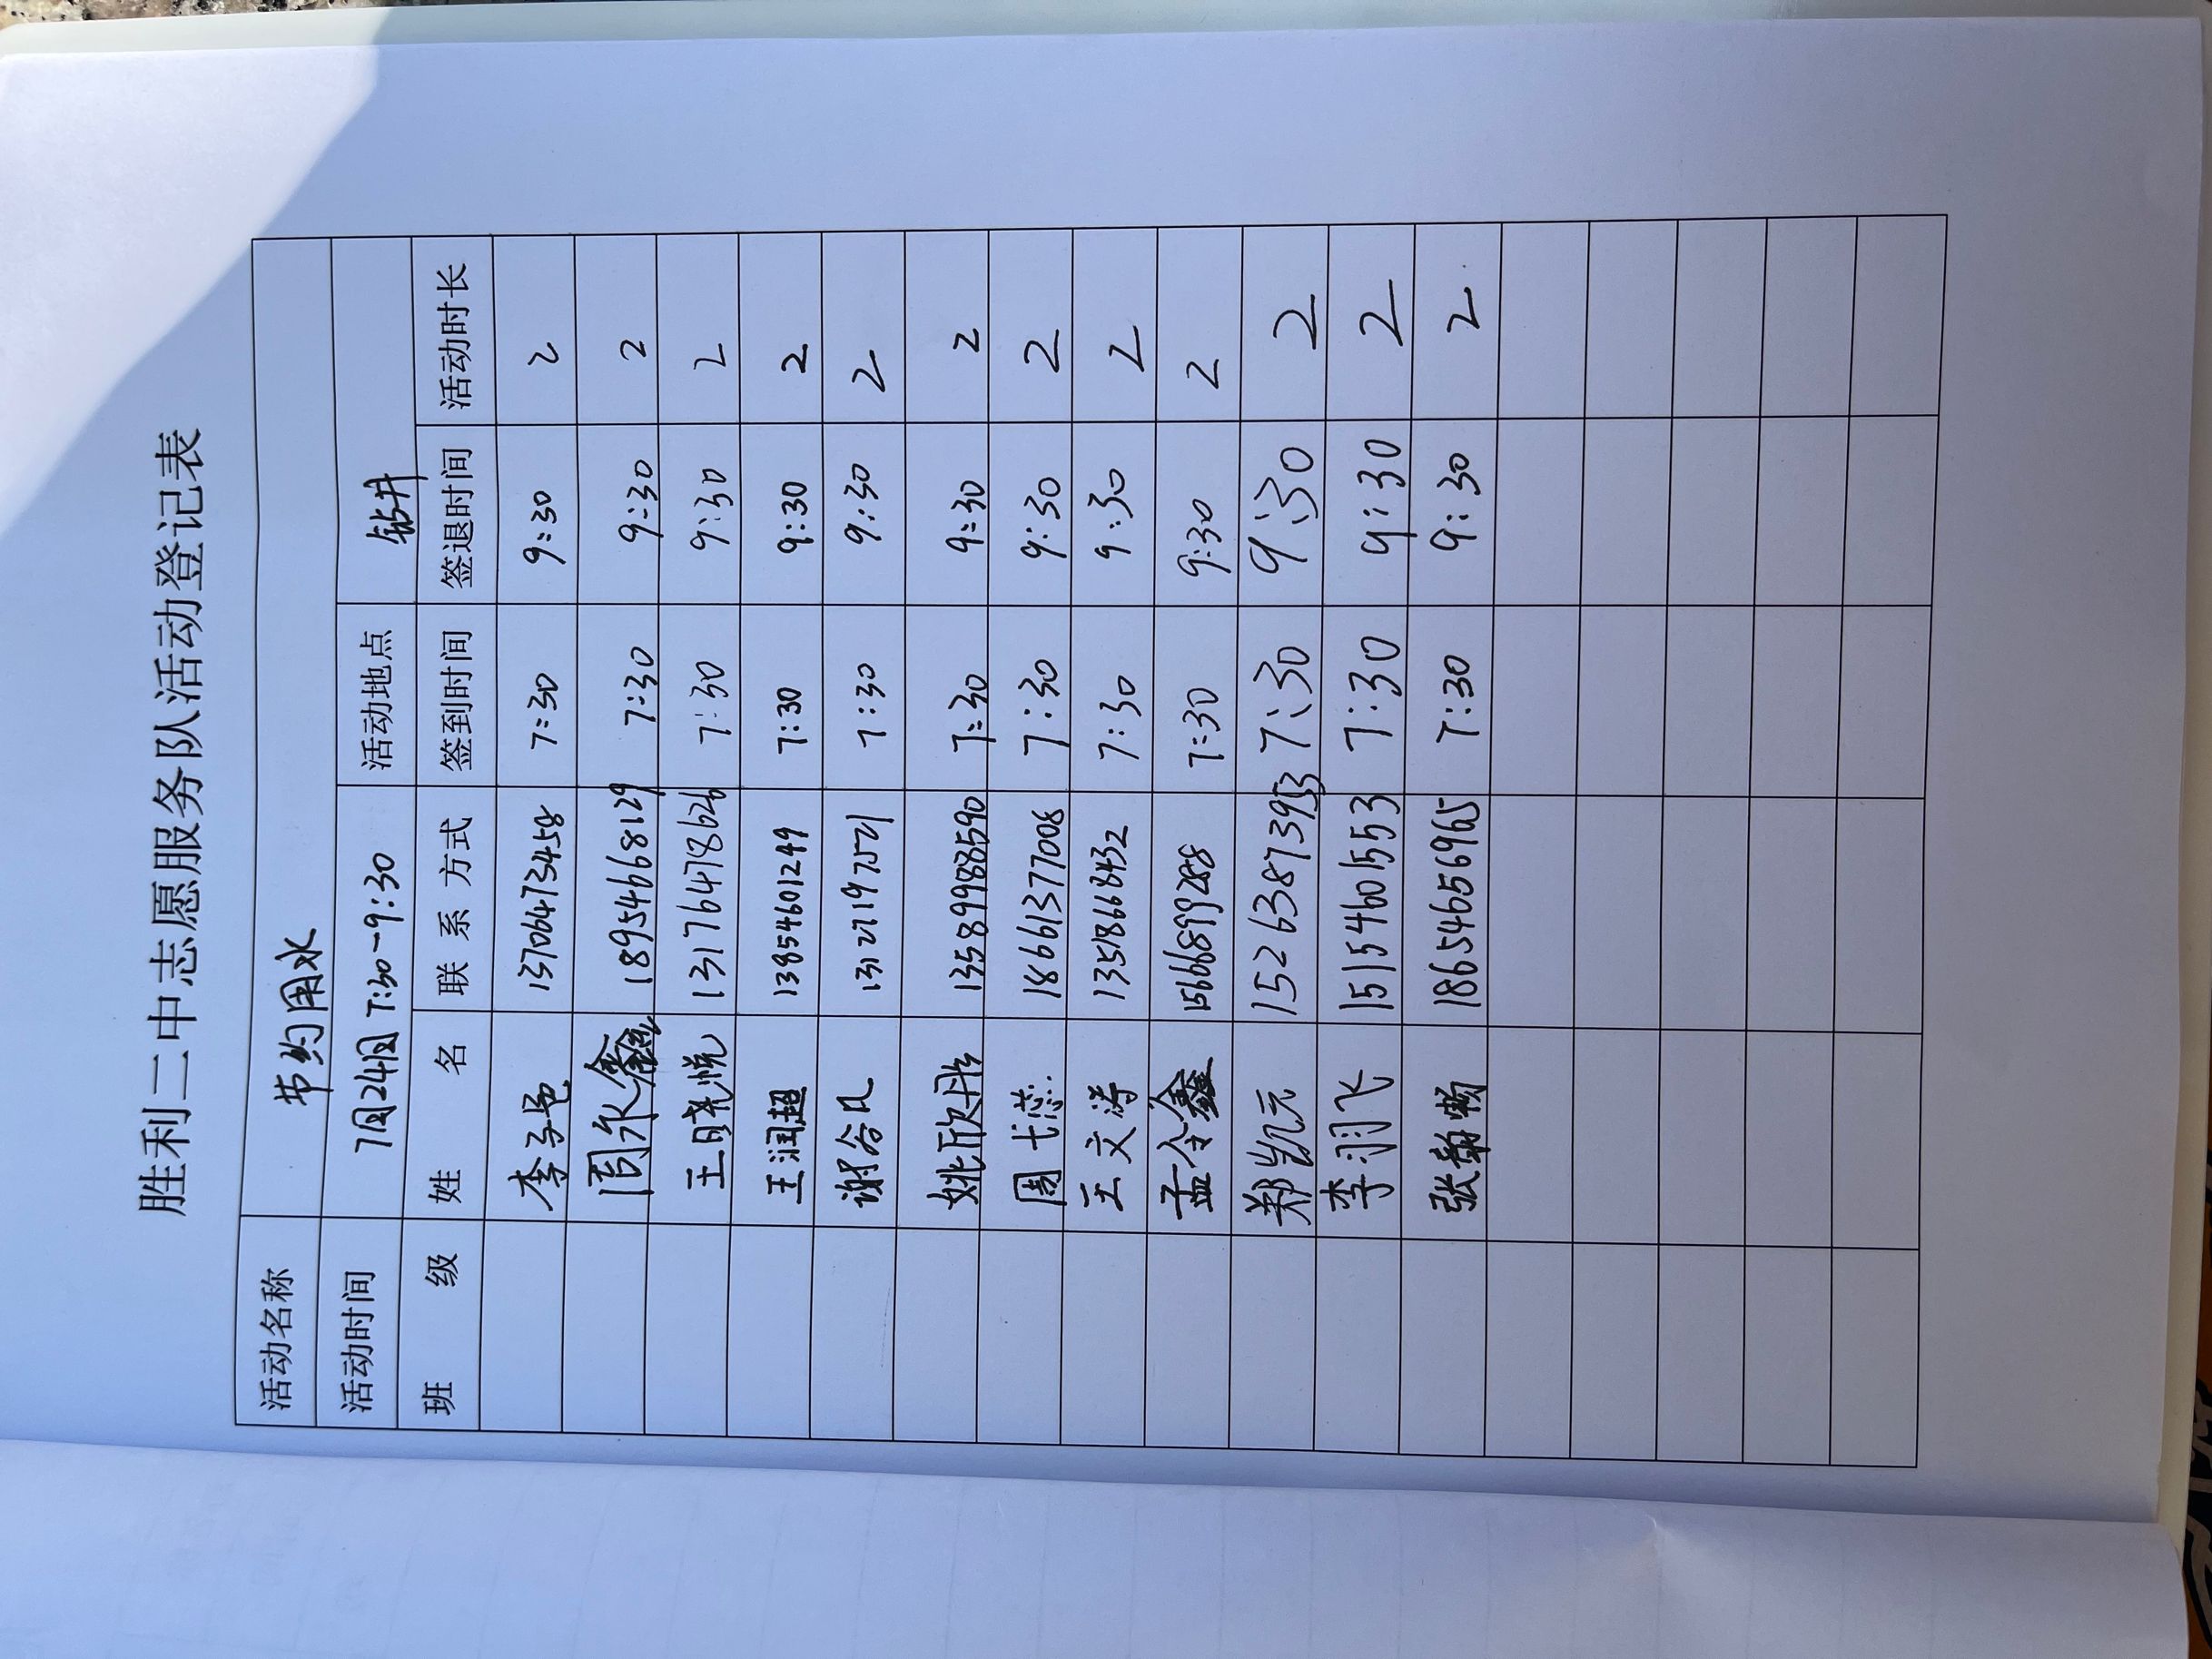 胜利二中志愿服务队活动登记表
活动名称 节约用水
活动时间 7月24日 7:30-9:30 活动地点 钻井
班级 姓名 联系方式 签到时间 签退时间 活动时长
李子邑 13706473458 7:30 9:30 2
周永鑫 18954668129 7:30 9:30 2
王晓悦 13176478626 7:30 9:30 2
王润超 13854601249 7:30 9:30 2
谢谷凡 7:30 9:30 2
姚欣彤 13589988590 7:30 9:30 2
周士蕊 18661377008 7:30 9:30 2
王文涛 13518668432 7:30 9:30 2
孟令鑫 15666899288 7:30 9:30 2
郑凯元 15263873953 7:30 9:30 2
李羽飞 15154601553 7:30 9:30 2
张翰畅 18654656965 7:30 9:30 2